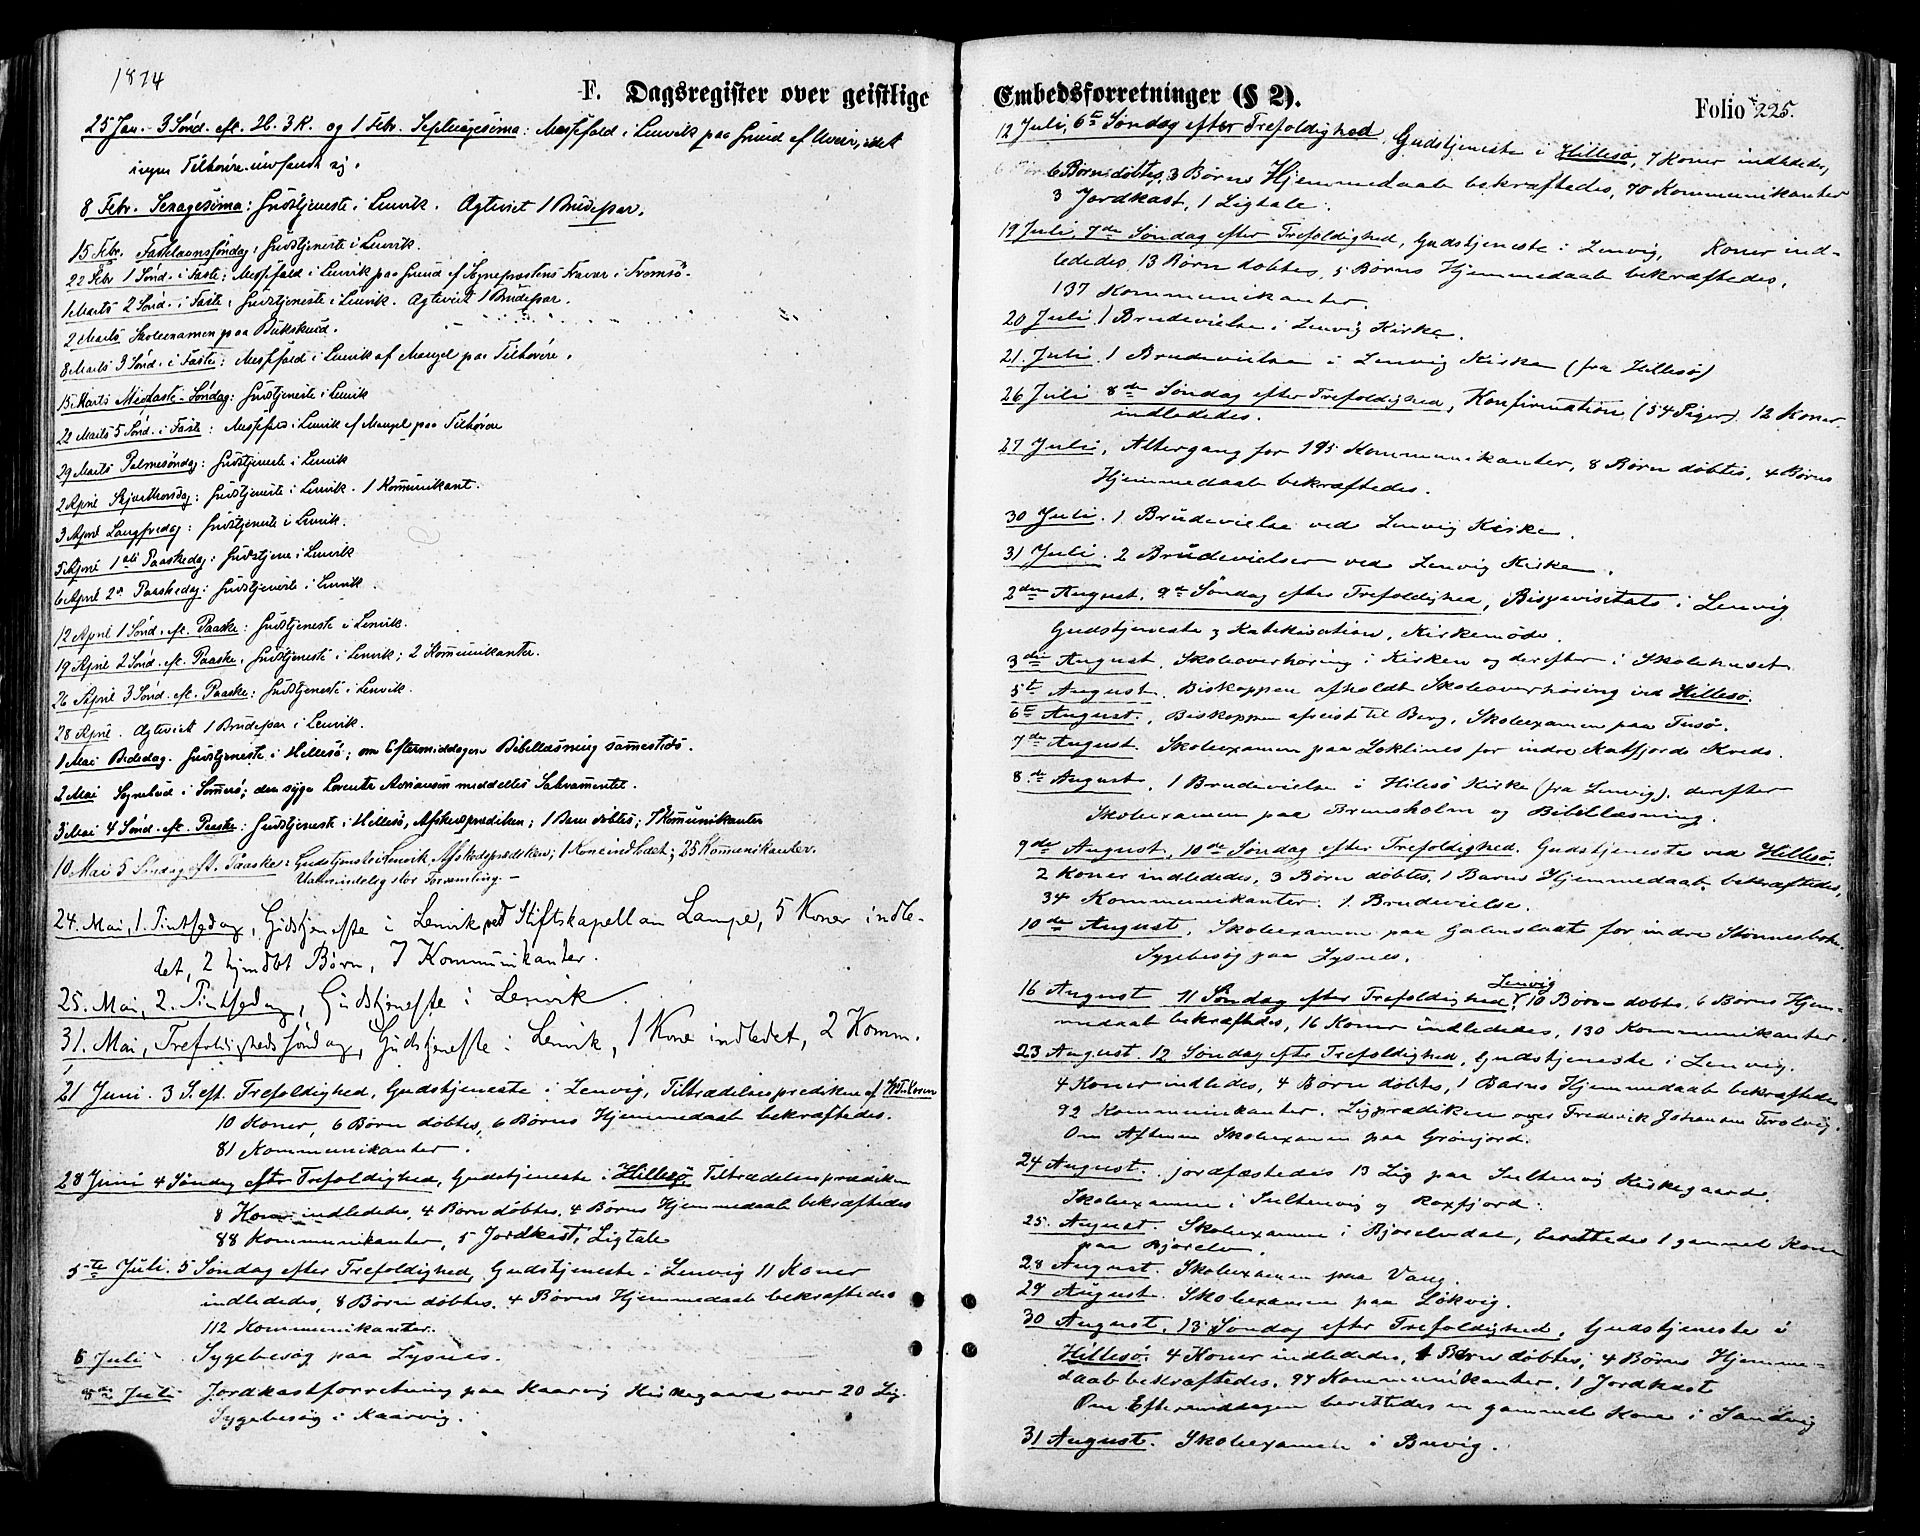 1874
F. Dagsregister over geistlige
25 Jan. 3 Sønd. eft. H. 3 K. og 1 Febr. Septuagesima: Messefald i Lenvik paa Grund af Uveir, idet
ingen Tilhørere indfandt sig.
8 Febr. Sexagesima: Gudstjeneste i Lenvik. Ægteviet 1 Brudepar.
15 Febr. Fastelavnssøndag: Gudstjeneste i Lenvik.
22 Febr 1 Sønd. i Faste: Messefald i Lenvik paa Grund af Sognepræstens Fravær i Tromsø.
1 Marts 2 Sønd. i Faste: Gudstjeneste i Lenvik. Ægteviet 1 Brudepar.
2 Marts Skoleexamen paa
8 Marts 3 Sønd. i Faste: Messefald i Lenvik af Mangel paa Tilhørere.
15 Marts Midfaste-Søndag: Gudstjeneste i Lenvik
22 Marts 5 Sønd. i Faste: Messefald i Lenvik af Mangel paa Tilhørere
29 Marts Palmesøndag: Gudstjeneste i Lenvik
2 April Skjærthorsdag: Gudstjeneste i Lenvik. 1 Kommunikant.
3 April Langfredag: Gudstjeneste i Lenvik.
5 April 1ste Paaskedag: Gudstjene i Lenvik
6 April 2n Paaskedag: Gudstjeneste i Lenvik.
12 April 1 Sønd. eft. Paaske: Gudstjeneste i Lenvik.
19 April 2 Sønd. eft. Paaske, Gudstjeneste i Lenvik; 2 Kommunikanter.
26 April 3 Sønd. eft. Paaske: Gudstjeneste i Lenvik.
28 April. Ægteviet 1 Brudepar i Lenvik.
1 Mai Bededag. Gudstjeneste i Hillesø; om Eftermiddagen Bibellæsning sammesteds.
2 Mai Sognebud i Sommerø; den syge Lorents Adriansen meddeltes Sakramentet.
3 Mai 4 Sønd. eft. Paaske: Gudstjeneste i Hillesø, Afskedsprædiken; 1 Barn døbtes; 7 Kommunikanter
10 Mai 5 Søndag eft. Paaske: Gudstjeneste i Lenvik, Afskedsprædiken; 1 Kone indledet; 25 Kommunikanter.
Ualmindelig stor Forsamling.-
24. Mai, 1. Pintsedag, Gudstjeneste i Lenvik ved Stiftskapellan Lampe, 5 Koner indle-
det, 2 hjmdbt Børn, 7 Kommunikanter.
25. Mai, 2. Pintsedag, Gudstjeneste i Lenvik.
31. Mai, Trefoldighedssøndag, Gudstjeneste i Lenvik, 1 Kone indledet, 2 Komm.
21 Juni. 3 S. eft. Trefoldighed, Gudstjeneste i Lenvig, Tiltrædelsesprædiken af
10 Koner, 6 Børn døbtes, 6 Børns Hjemmedaab bekræftedes.
81 Kommunikanter.
28 Juni 4 Søndag efter Trefoldighed, Gudstjeneste i Hillesø, Tiltrædelsesprædiken
8 Koner indlededes, 4 Børn døbtes, 4 Børns Hjemmedaab bekræftedes
88 Kommunikanter, 5 Jordkast, Ligtale
5te Juli. 5 Søndag efter Trefoldighed, Gudstjeneste i Lenvig 11 Koner
indlededes, 8 Børn døbtes, 4 Børns Hjemmedaab bekræftedes
112 Kommunikanter.
6 Juli Sygebesøg paa Lysnes.
8de Juli Jordkastforretning paa Kaarvig Kirkegaard over 20 Lig.
Sygebesøg i Kaarvig.
Embedsforretninger (§ 2).
Folio 225.
12 Juli, 6te Søndag efter Trefoldighed. Gudstjeneste i Hillesø, 7 Koner indlededes,
6 Børn døbtes, 3 Børns Hjemmedaab bekræftedes, 70 Kommunikanter
3 Jordkast, 1 Ligtale.
19 Juli, 7de Søndag efter Trefoldighed, Gudstjeneste i Lenvig, Koner ind-
lededes, 13 Børn døbtes, 5 Børns Hjemmedaab bekræftedes,
137 Kommunikanter.
20 Juli 1 Brudevielse i Lenvig Kirke.
21. Juli. 1 Brudevielse i Lenvig Kirke (fra Hillesø)
26 Juli 8de Søndag efter Trefoldighed, Konfirmation (54 Piger). 12 Koner
indlededes.
27 Juli, Altergang for 195 Kommunikanter, 8 Børn døbtes, 4 Børns
Hjemmedaab bekræftedes.
30 Juli. 1 Brudevielse ved Lenvig Kirke.
31 Juli. 2 Brudevielser ved Lenvig Kirke.
2den August. 9de Søndag efter Trefoldighed, Bispevisitats i Lenvig
Gudstjeneste og Katekisation, Kirkemøde.
3die August. Skoleoverhøring i Kirken og derefter i Skolehuset
5te August. Biskoppen afholdt Skoleoverhøring ved Hillesø.
6te August. Biskoppen afreist til Berg, Skoleexamen paa Tusø.
7de August. Skoleexamen paa Løklines for indre Katfjords Kreds
8de August, 1 Brudevielse i Hillesø Kirke (fra Lenvig), derefter
Skoleexamen paa Brensholm og Bibellæsning.
9de August, 10de Søndag efter Trefoldighed. Gudstjeneste ved Hillesø.
2 Koner indlededes, 3 Børn døbtes, 1 Barns Hjemmedaab bekræftedes,
34 Kommunikanter. 1 Brudevielse.
10de August, Skoleexamen paa for indre
Sygebesøg paa Lysnes.
16 August 11 Søndag efter Trefoldighed, Lenvig 10 Børn døbtes, 6 Børns Hjem-
medaab bekræftedes, 16 Koner indlededes, 130 Kommunikanter.
23 August. 12 Søndag eftr Trefoldighed, Gudstjeneste i Lenvig.
4 Koner indlededes, 4 Børn døbtes, 1 Barns Hjemmedaab bekræftedes
92 Kommunikanter. Ligprædiken over Frederik Johansen
Om Aftenen Skoleexamen paa Grønjord.
24 August. jordfæstedes 13 Lig paa Kirkegaard.
Skoleexamen i og
25. August. Skoleexamen i Bjorelvdal, berettedes 1 gammel Kone
paa Bjorelv.
28 August. Skoleexamen paa Vang.
29 August. Skoleexamen paa Løkvig.
30 August, 13 Søndag efter Trefoldighed, Gudstjeneste i
Hillesø. 4 Koner indlededes, 1 Børn døbtes, 4 Børns Hjemme-
daab bekræftedes, 97 Kommunikanter, 1 Jordkast
Om Eftermiddagen berettedes en gammel Kone i Sandvig
31 August. Skoleexamen i Buvig.